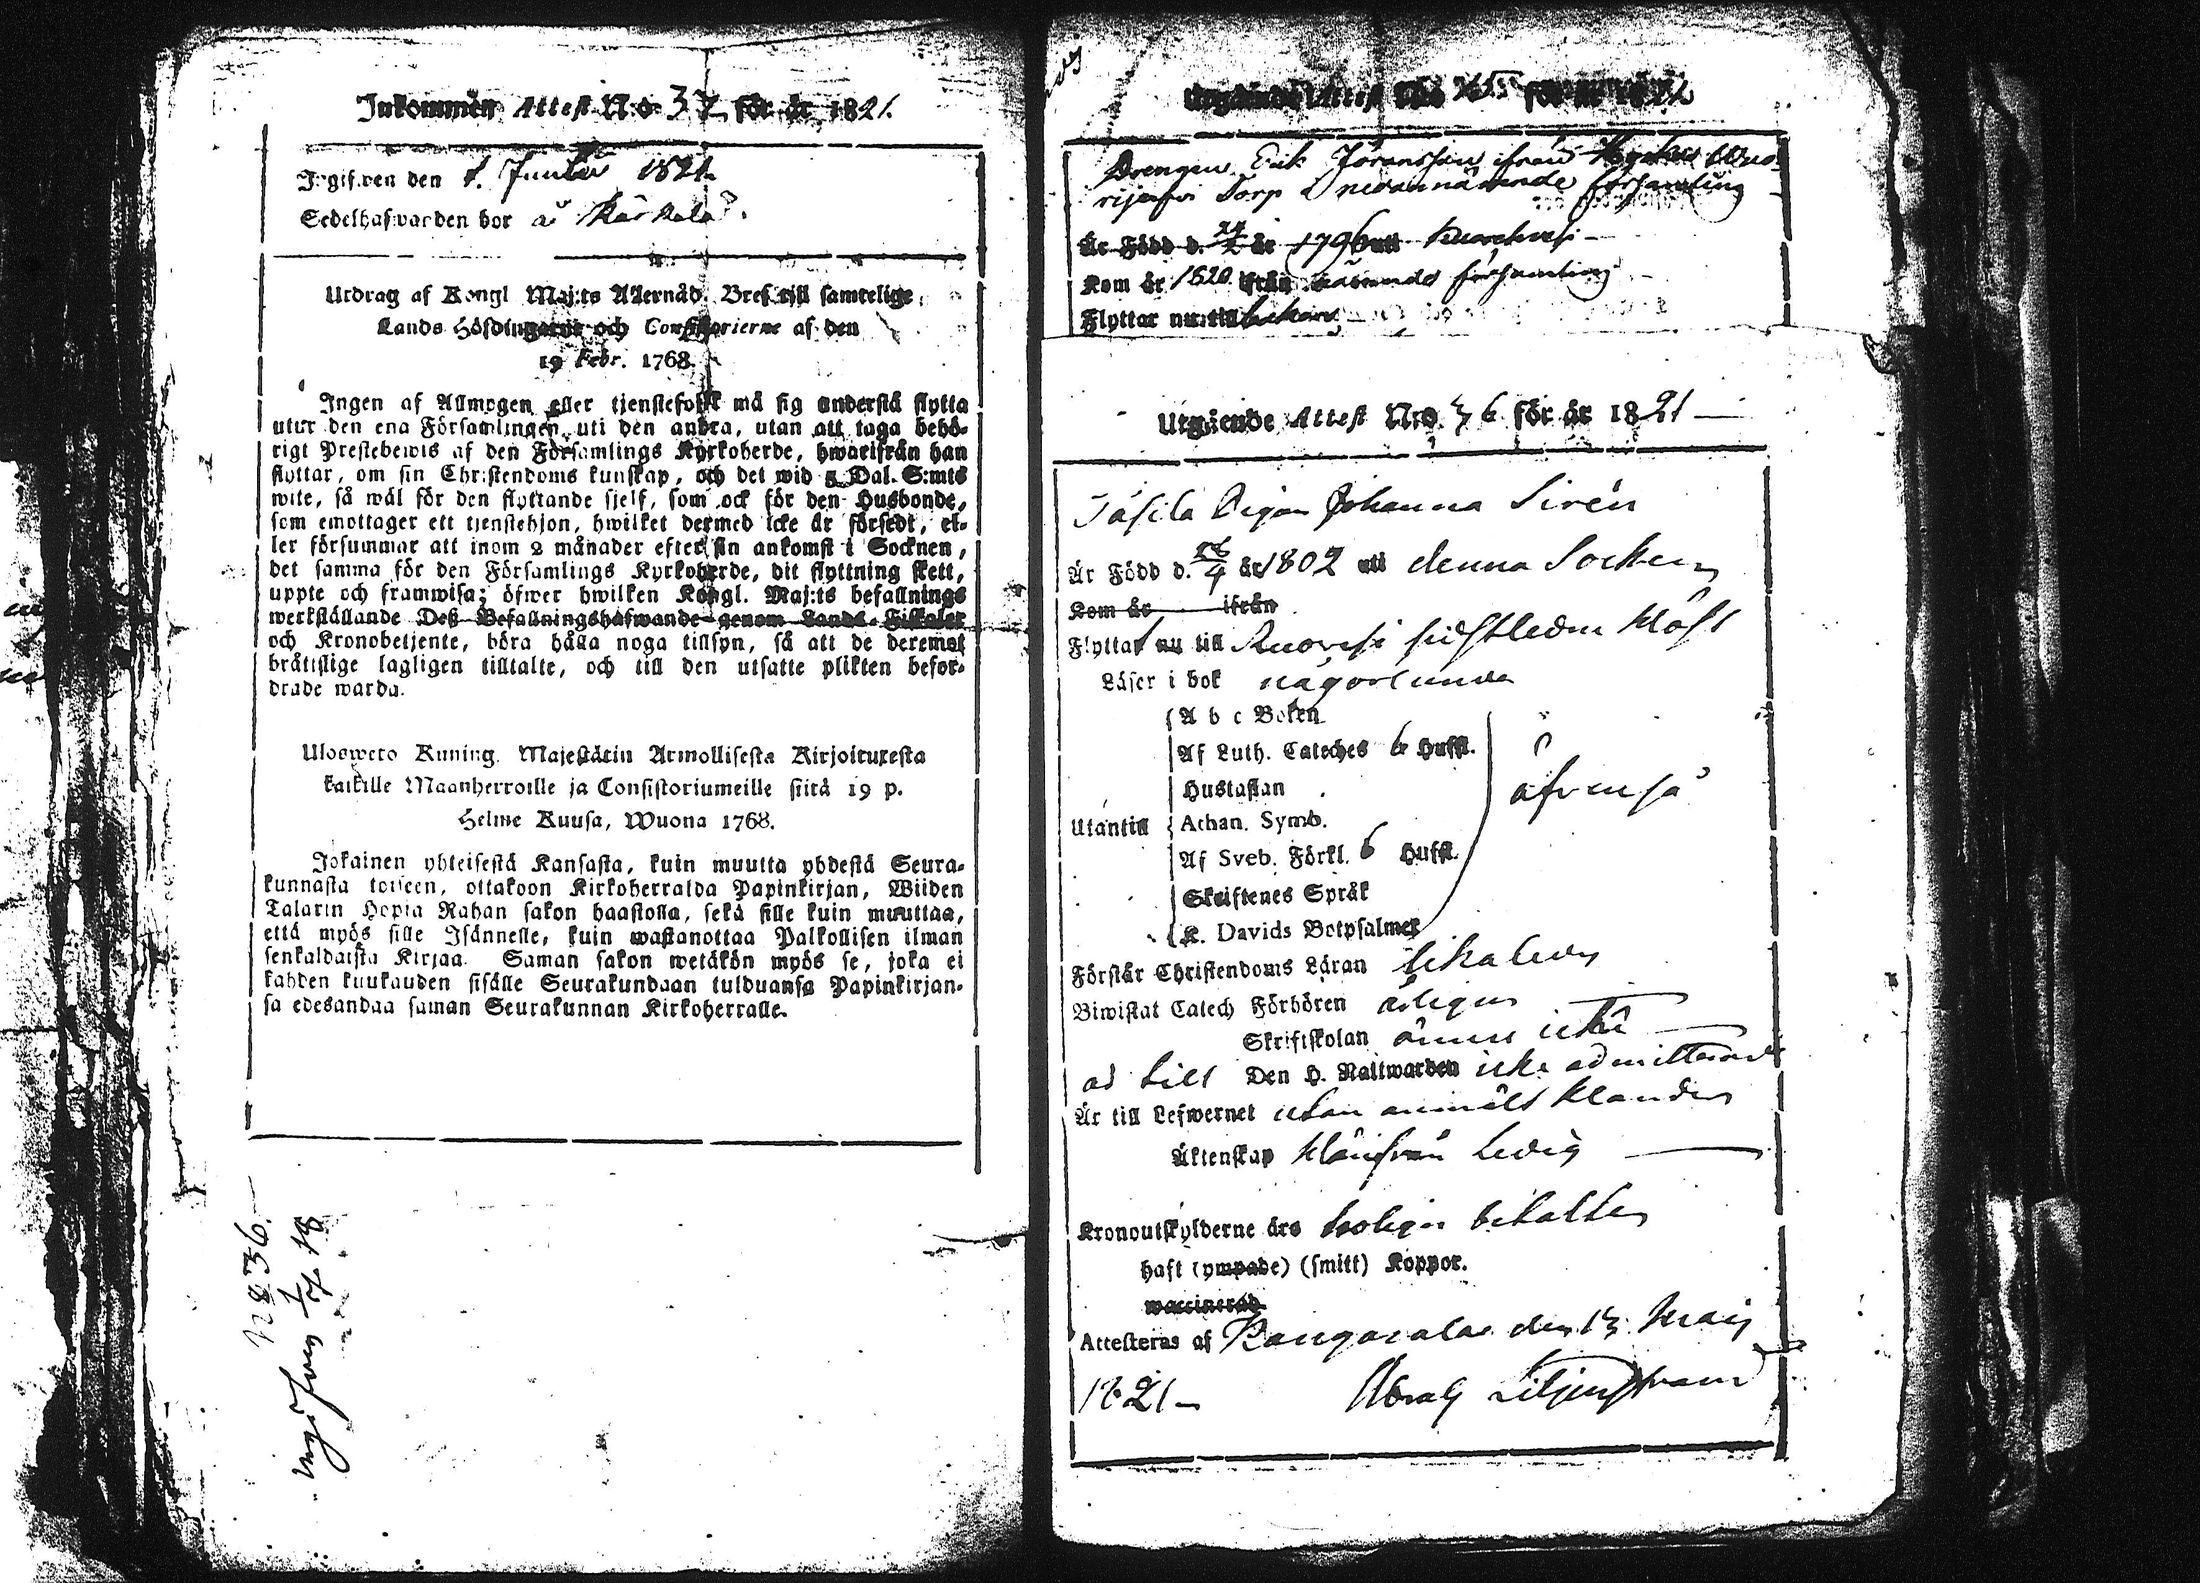 Inkommen Attest N:o 37 för år 1821.
Ingifwen den 1. Junii 1821
Sedelhafwarden bor å Kärkola
Utdrag af Kongl. Maj:ts Allernåd. Bref till samtelige
Lands Höfdingarne och Consistorierne af den
19 Febr. 1768.
Ingen af Allmogen eller tjenstefolk må sig understå flytta
utur den ena Församlingen uti den andra, utan att taga behö-
rigt Prestebewis af den Församlings Kyrkoherde, hwarifrån han
flyttar, om sin Christendoms kunskap, och det wid 5 Dal. S:mts
wite, så wäl för den flyttande sjelf, som ock för den Husbonde,
som emottager ett tjenstehjon, hwilket dermed icke är försedt, el-
ler försummar att inom 2 månader efter sin ankomst i Socknen,
det samma för den Församlings Kyrkoherde, dit flyttning skett,
uppte och framwisa; öfwer hwilken Kongl. Maj:ts befallnings
werkställande Deß Befallningshafwande genom Lands-Fiskaler
och Kronobetjente, böra hålla noga tillsyn, så att de deremot
bråttslige lagligen tilltalte, och till den utsatte plikten befor-
drade warda.
Uloswето Kuning. Majestätin Armollisesta Kirjoituxesta
kaikille Maanherroille ja Consistoriumeille siitä 19 p.
Helme Kuusa, Wuona 1768.
Jokainen yhteisestä Kansasta, kuin muutta yhdestä Seura-
kunnasta toiseen, ottakoon Kirkoherralda Papinkirjan, Wiiden
Talarin Hopia Rahan sakon haastolla, sekä sille kuin muuttaa,
että myös sille Isännelle, kuin wastanottaa Palkollisen ilman
senkaldaista Kirjaa. Saman sakon wetäkön myös se, joka ei
kahden kuukauden sisälle Seurakundaan tulduansa Papinkirjan-
sa edesandaa saman Seurakunnan Kirkoherralle.
N:o 36.
Utgående Attest N:o för år 1822
Drengen Erik Jöransson ifrån
Torp i nedannämnde församling
Är Född d. 24/2 år 1796 uti Kuorehvesi
Kom år 1820 ifrån församling
Flyttar nu till
Utgående Attest N:o 36 för år 1821
Pigan Johanna Sirén
Är Född d. 26/4 år 1802 uti denna Socken
Kom år ifrån
Flyttat nu till Ruovesi sistledne Höst
Läser i bok någorlunda
A b c Boken
Af Luth. Cateches 6 Hufst.
Hustaflan
Utantill Athan. Symb.
äfvenså
Af Sveb. Förkl. 6 Hufst.
Skriftenes Språk
K. Davids Botpsalmer
Förstår Christendoms Läran likaledes
Biwistat Catech Förhören årligen
Skriftskolan ännu icke
Den H. Nattwarden icke admitterad
Är till Lefwernet utan anmält klander
Äktenskap hinderfri Ledig
Kronoutskylderne äro troligen betalte
haft (ympade) (smitt) Koppor.
waccinerad
Attesteras af Kangasala den 13 Maij
1821 Abrah Liljenstrand